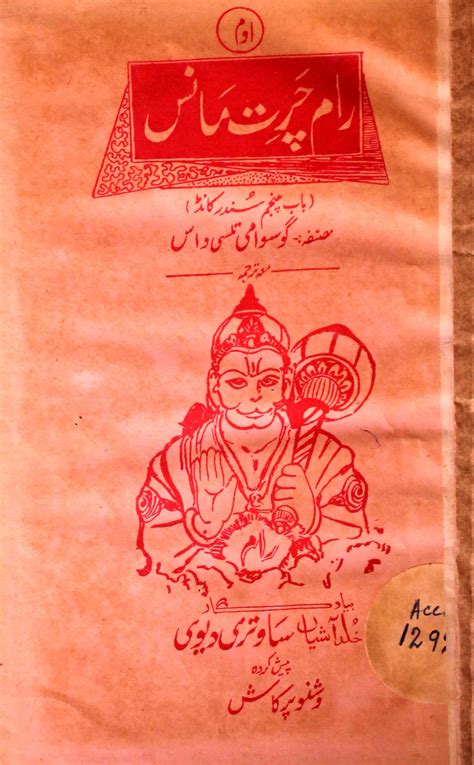 اوم
رام چرت مانس
(باب پنجم سُندر کانڈ)
مصنفہ:۔ گوسوامی تلسی داس
معہ ترجمہ
رام
بیادگار
خُلد آشیاں ساوتری دیوی
پیش کردہ
وشنو پرکاش
Acc
129